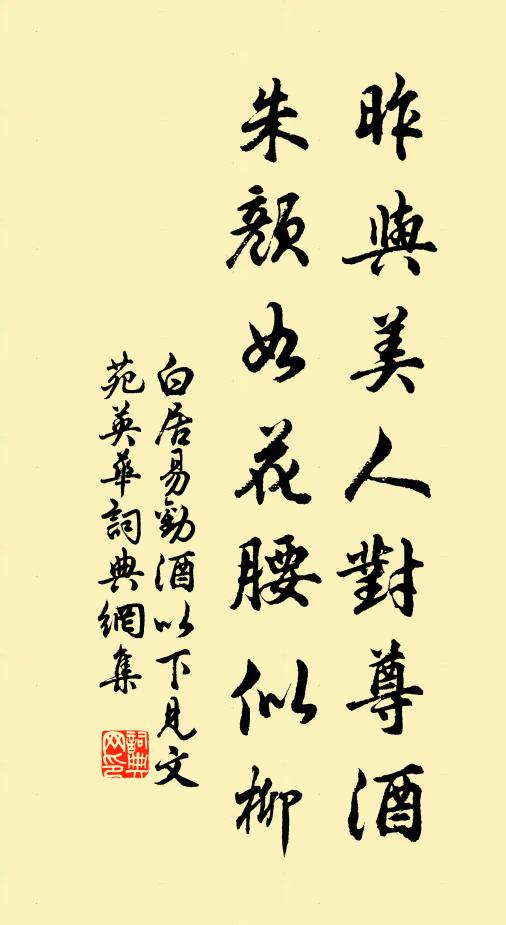 昨與美人對尊酒
朱顏如花腰似柳
白居易勸酒以下見文
苑英華詞典網集
詞典
网印